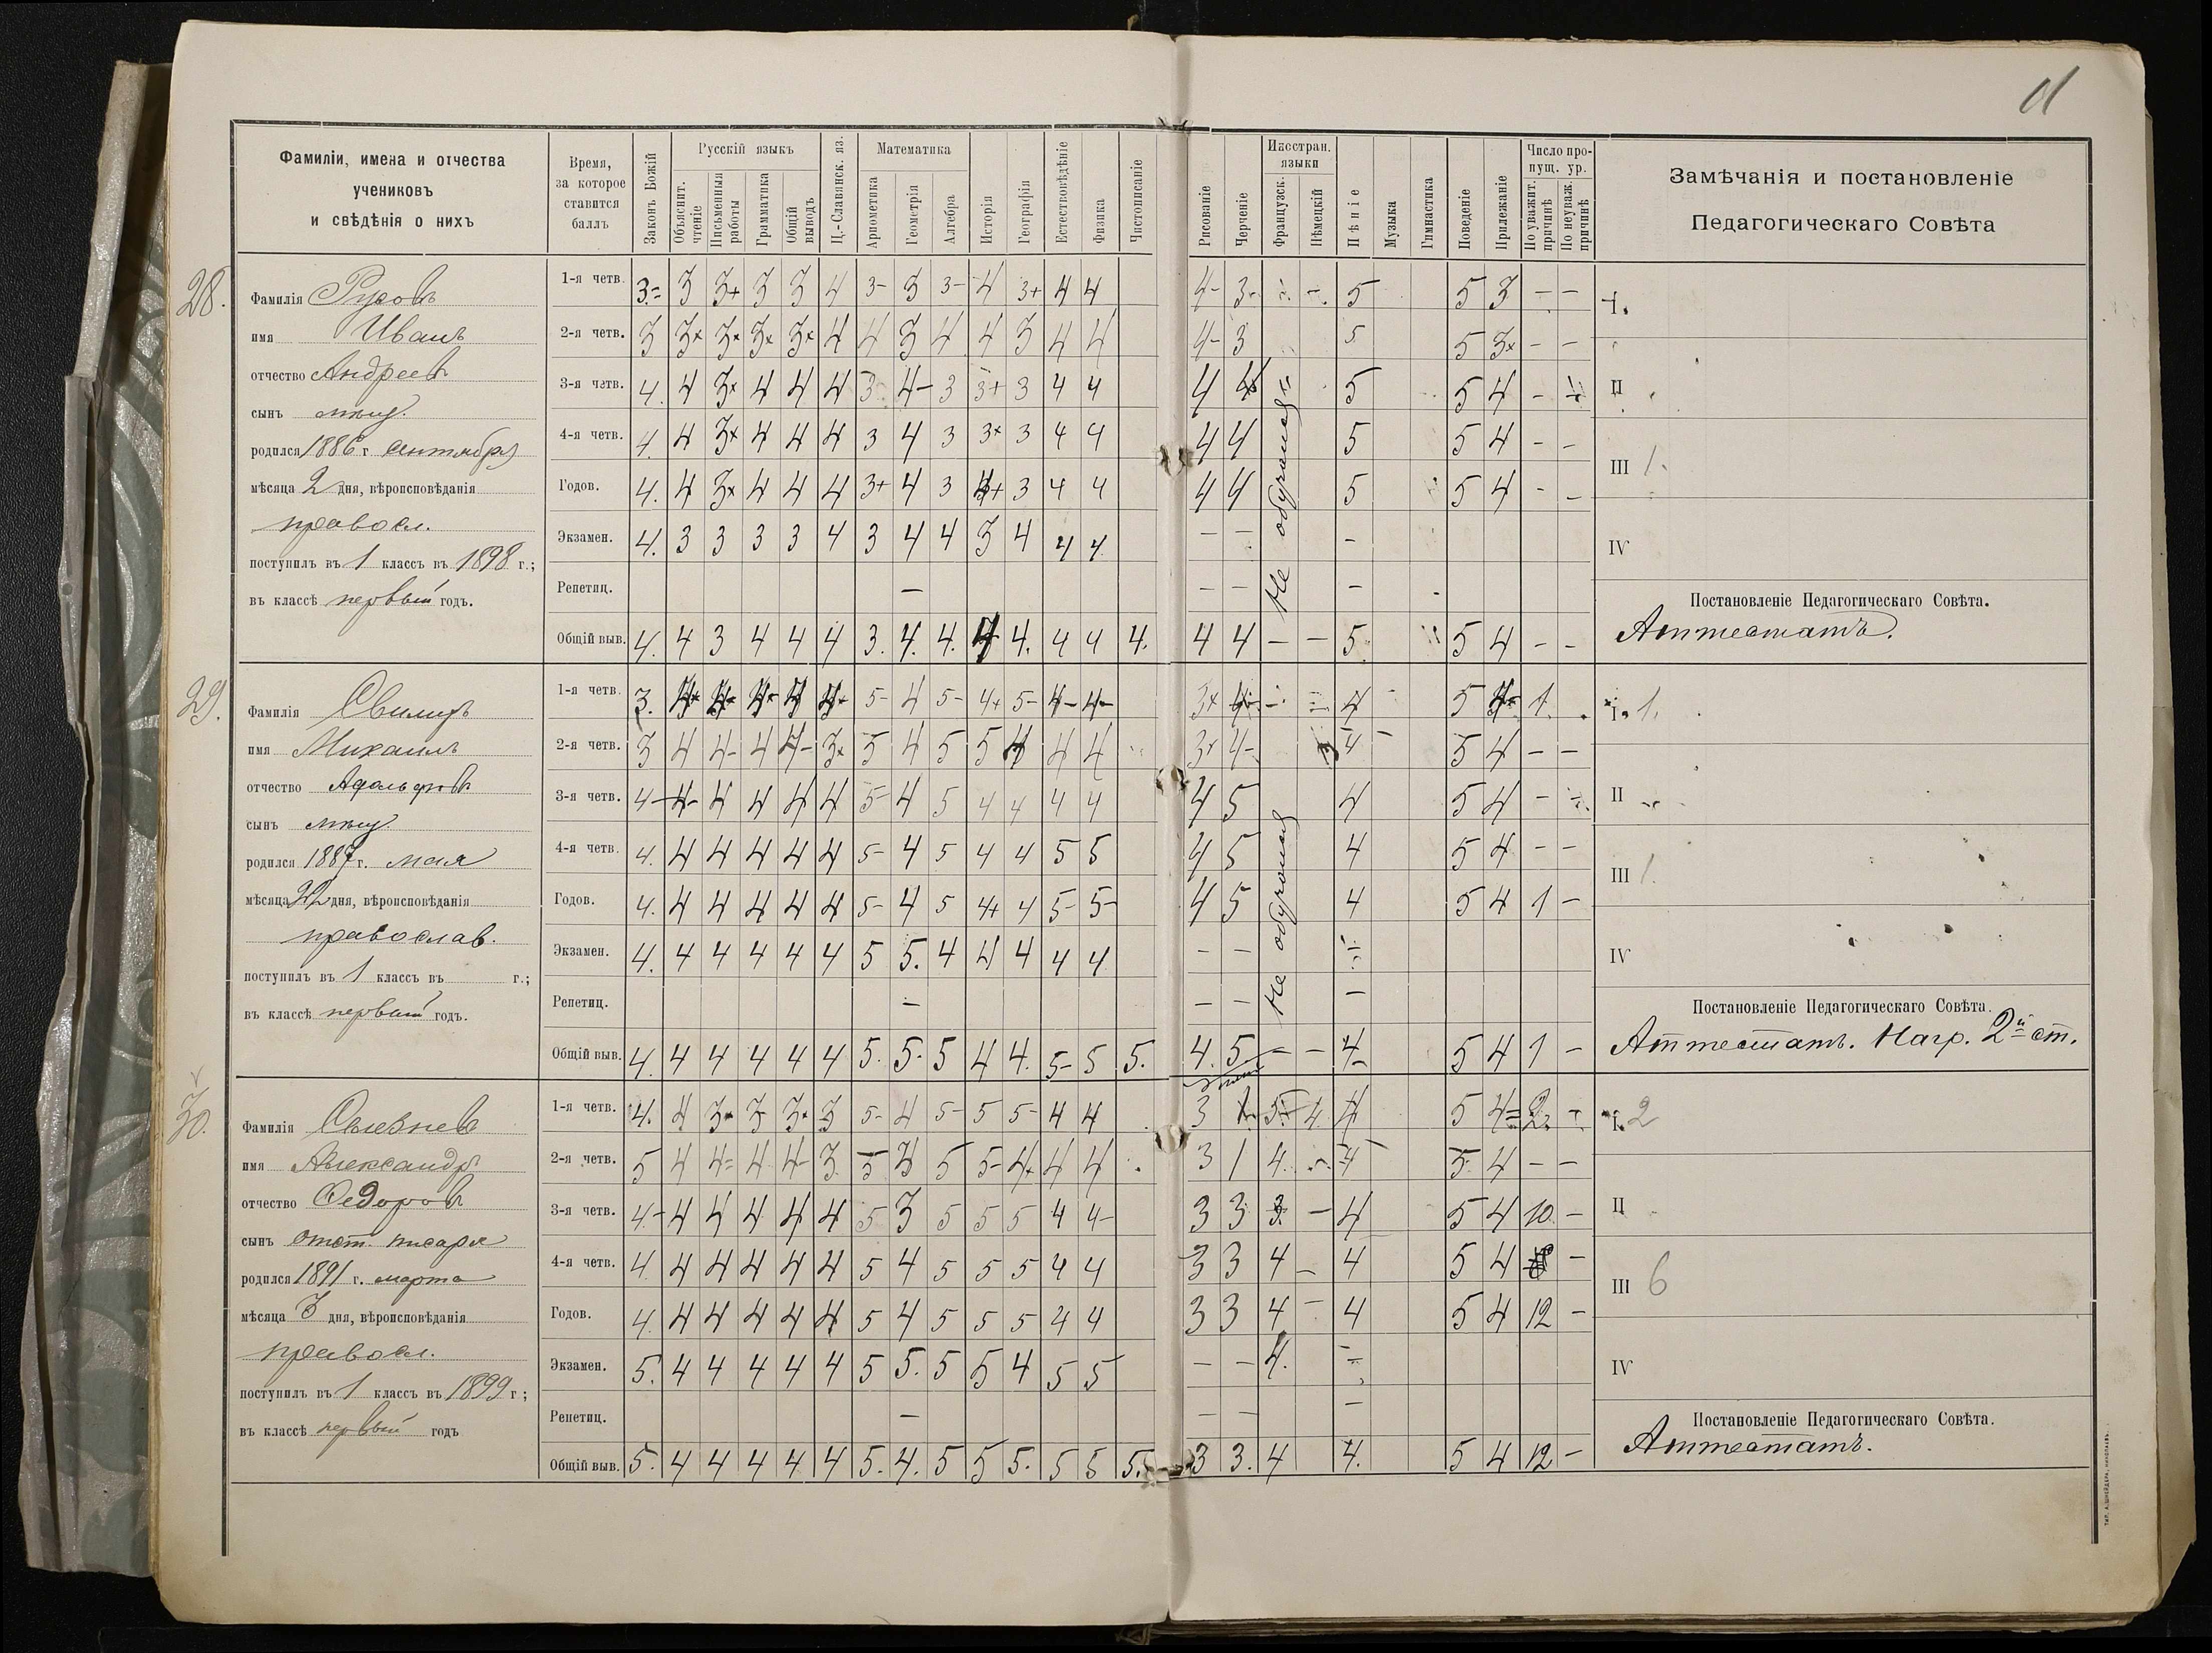 11
Фамиліи, имена и отчества
учениковъ
и свѣдѣнія о нихъ
Время,
за которое
ставится
баллъ
Законъ Божій
Русскій языкъ
Объяснит. чтеніе
Письменныя работы
Грамматика
Общій выводъ
Ц.-Славянск. яз.
Математика
Ариѳметика
Геометрія
Алгебра
Исторія
Географія
Естествовѣдѣніе
Физика
Чистописаніе
Рисованіе
Черченіе
Иностран. языки
Французск.
Нѣмецкій
Пѣніе
Музыка
Гимнастика
Поведеніе
Прилежаніе
Число пропущ. ур.
По уважит. причинѣ
По неуваж. причинѣ
Замѣчанія и постановленіе
Педагогическаго Совѣта
28.
Фамилія
имя Иванъ
отчество Андреевъ
сынъ мѣщ.
родился 1886 г. сентября
мѣсяца 2 дня, вѣроисповѣданія
правосл.
поступилъ въ 1 классъ въ 1898 г.;
въ классѣ первый годъ.
1-я четв. 3= 3 3+ 3 3 4 3- 3 3- 4 3+ 4 4 4- 3- 5 5 3 - -
2-я четв. 3 3+ 3+ 3+ 3+ 4 4 3 4 4 3 4 4 4- 3 5 5 3+ - -
3-я четв. 4. 4 3+ 4 4 4 3 4- 3 3+ 3 4 4 4 4 5 5 4 -
4-я четв. 4. 4 3+ 4 4 4 3 4 3 3+ 3 4 4 4 4 5 5 4 - -
Годов. 4. 4 3+ 4 4 4 3+ 4 3 3+ 3 4 4 4 4 5 5 4 - -
Экзамен. 4. 3 3 3 3 4 3 4 4 3 4 4 4 - - -
Репетиц. - - - -
Общій выв. 4. 4 3 4 4 4 3. 4. 4. 4 4. 4 4 4. 4 4 - - 5. 5 4 - -
Не обучался
I.
II
III 1.
IV
Постановленіе Педагогическаго Совѣта.
Аттестатъ.
29.
Фамилія
имя Михаилъ
отчество Адольфовъ
сынъ мѣщ.
родился 1887 г. мая
мѣсяца 22 дня, вѣроисповѣданія
православ.
поступилъ въ 1 классъ въ г.;
въ классѣ первый годъ.
1-я четв. 3. 5- 4 5- 4+ 5- 4- 4- 3+ 4 5 1.
2-я четв. 3 4 4- 4 4- 3+ 5 4 5 5 4 4 4 3+ 4- 4 5 4 - -
3-я четв. 4- 4- 4 4 4 4 5- 4 5 4 4 4 4 4 5 4 5 4 -
4-я четв. 4. 4 4 4 4 4 5- 4 5 4 4 5 5 4 5 4 5 4 - -
Годов. 4. 4 4 4 4 4 5- 4 5 4+ 4 5- 5- 4 5 4 5 4 1 -
Экзамен. 4. 4 4 4 4 4 5 5. 4 4 4 4 4 - - -
Репетиц. - - - -
Общій выв. 4. 4 4 4 4 4 5. 5. 5 4 4. 5- 5 5. 4. 5 - - 4 5 4 1 -
Не обучался
I. 1.
II
III 1.
IV
Постановленіе Педагогическаго Совѣта.
Аттестатъ. Нагр. 2й ст.
30.
Фамилія Селезневъ
имя Александръ
отчество Федоровъ
сынъ отст. писаря
родился 1891 г. марта
мѣсяца 3 дня, вѣроисповѣданія
правосл.
поступилъ въ 1 классъ въ 1899 г;
въ классѣ первый годъ
1-я четв. 4. 4 3+ 3 3+ 3 5- 4 5- 5 5- 4 4 3 5 4= 2.
2-я четв. 5 4 4= 4 4- 3 5 3 5 5- 4+ 4 4 3 1 4. 4 5 4 - -
3-я четв. 4- 4 4 4 4 4 5 3 5 5 5 4 4- 3 3 3 - 4 5 4 10 -
4-я четв. 4 4 4 4 4 4 5 4 5 5 5 4 4 3 3 4 - 4 5 4 -
Годов. 4. 4 4 4 4 4 5 4 5 5 5 4 4 3 3 4 - 4 5 4 12 -
Экзамен. 5. 4 4 4 4 4 5 5. 5 5 4 5 5 - - 4. -
Репетиц. - - - -
Общій выв. 5. 4 4 4 4 4 5. 4. 5 5 5. 5 5 5. 3 3. 4 4. 5 4 12 -
I. 2
II
III 6
IV
Постановленіе Педагогическаго Совѣта.
Аттестатъ.